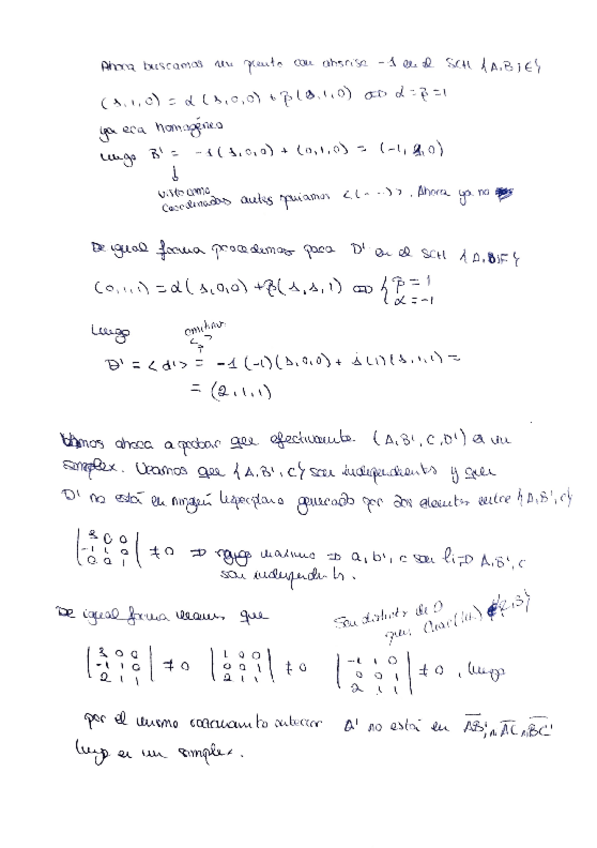 Ahora buscamos un punto con abscisa -1 en el SCH {A,B;E}
(1,1,0) = α(1,0,0) + β(0,1,0) ⇔ α=β=1
ya era homogéneo
luego B' = -1(1,0,0) + (0,1,0) = (-1,1,0)
↓
visto como
coordenadas antes poníamos <(...)>. Ahora ya no
De igual forma procedemos para D' en el SCH {A,B;F}
(0,1,1) = α(1,0,0) + β(1,1,1) ⇔ { β=1
α=-1
Luego
omitimos
< >
D' = <d'> = -1(-1)(1,0,0) + 1(1)(1,1,1) =
= (2,1,1)
Vamos ahora a probar que efectivamente (A,B',C,D') es un
simplex. Veamos que {A,B',C} son independientes y que
D' no está en ningún hiperplano generado por dos elementos entre {A,B',C}
| 1 0 0
-1 1 0
0 0 1 | ≠ 0 ⇒ rango máximo ⇒ a,b',c son li ⇒ A,B',C
son independientes.
De igual forma veamos que
Son distintos de 0
pues Char(lk) ∉{2,3}
| 1 0 0
-1 1 0
2 1 1 | ≠ 0 | 1 0 0
0 0 1
2 1 1 | ≠ 0 | -1 1 0
0 0 1
2 1 1 | ≠ 0, luego
por el mismo razonamiento anterior D' no está en AB', AC, BC'
luego es un simplex.